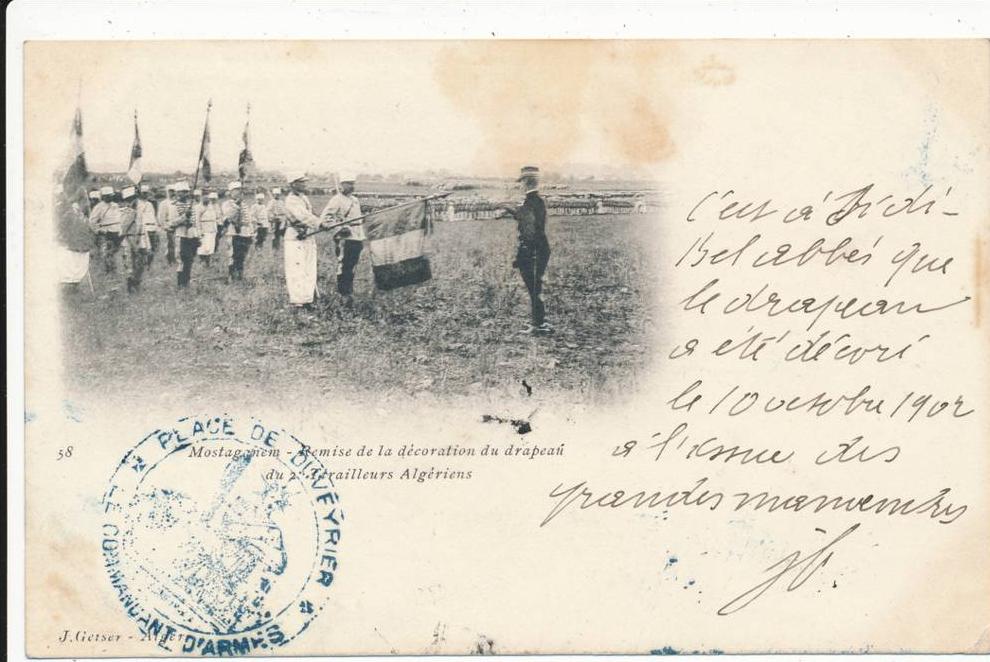 C'est à Sidi-
Bel abbés que
le drapeau
a été décoré
le 10 octobre 1902
à l'issue des
grandes manoeuvres
58
Mostaganem - Remise de la décoration du drapeau
du 2e Tirailleurs Algériens
PLACE DE DUVEYRIER
LE COMMANDANT D'ARMES
J. Geiser - Alger